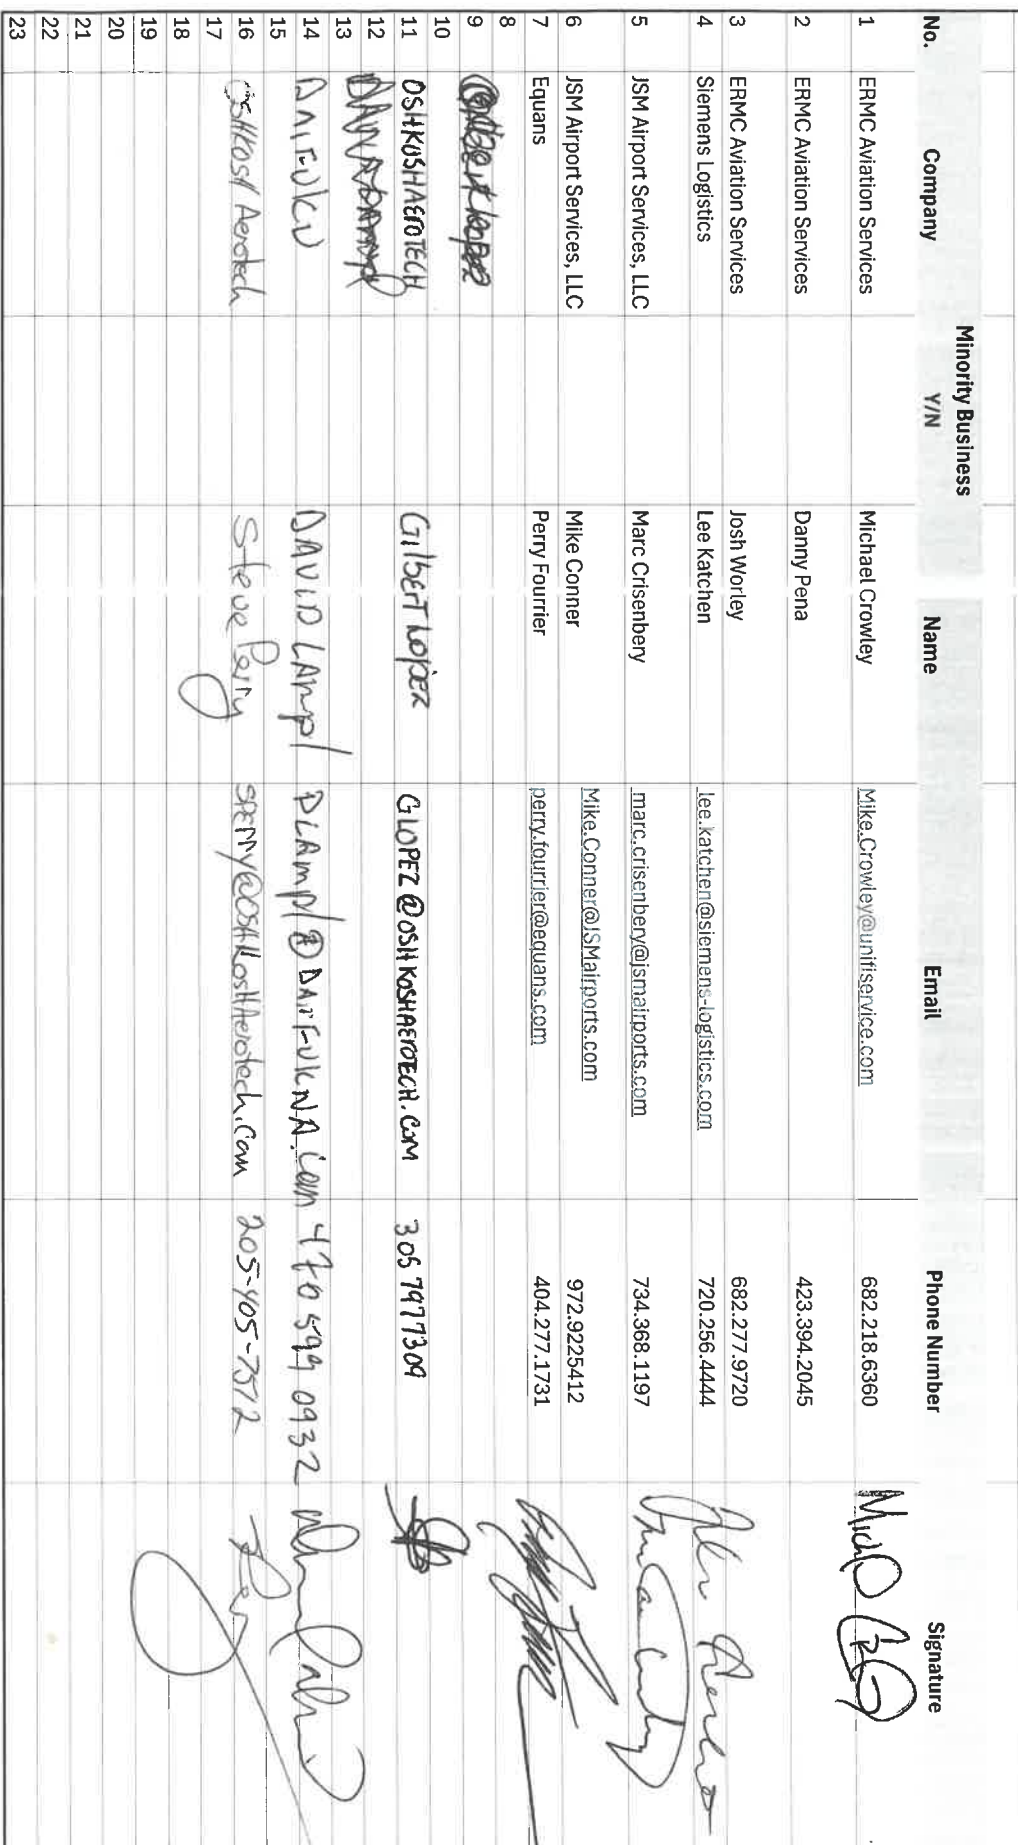 No. Company Minority Business Y/N Name Email Phone Number Signature
1 ERMC Aviation Services Michael Crowley Mike.Crowley@unifiservice.com 682.218.6360
2 ERMC Aviation Services Danny Pena 423.394.2045
3 ERMC Aviation Services Josh Worley 682.277.9720
4 Siemens Logistics Lee Katchen lee.katchen@siemens-logistics.com 720.256.4444
5 JSM Airport Services, LLC Marc Crisenbery marc.crisenbery@jsmairports.com 734.368.1197
6 JSM Airport Services, LLC Mike Conner Mike.Conner@JSMairports.com 972.9225412
7 Equans Perry Fourrier perry.fourrier@equans.com 404.277.1731
8
9
10
11 OSHKOSHAEROTECH GILBERT LOPEZ GLOPEZ@OSHKOSHAEROTECH.COM 305 7977309
12
13
14 DAIFUKU DAVID LAmpl DLAmpl@DAIFUKUNA.com 470 599 0932
15
16 OSHKOSH Aerotech Steve Perry SPERRY@OSHKOSHAerotech.Com 205-405-7572
17
18
19
20
21
22
23